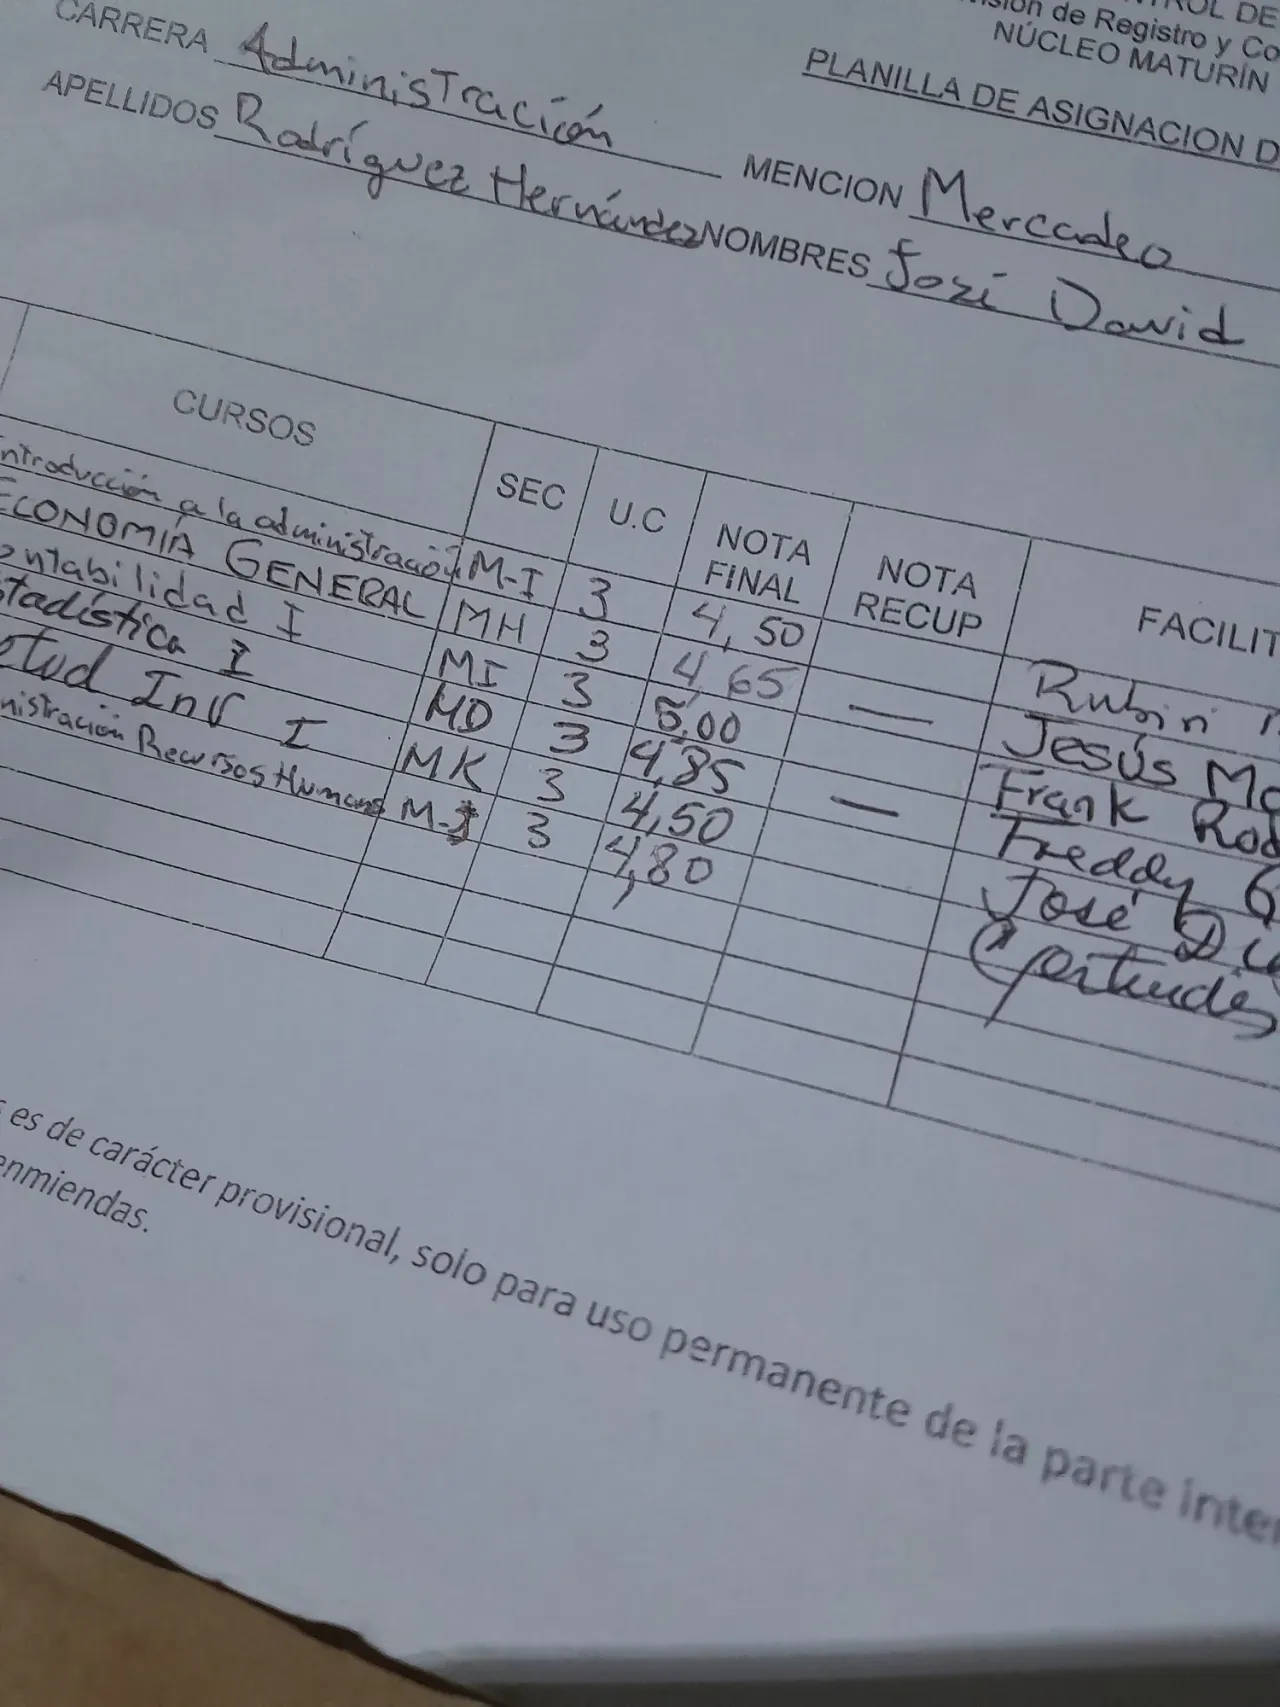 CONTROL DE
División de Registro y Co
NÚCLEO MATURÍN
PLANILLA DE ASIGNACION D
CARRERA Administración MENCION Mercadeo
APELLIDOS Rodríguez Hernández NOMBRES José David
CURSOS SEC U.C NOTA FINAL NOTA RECUP FACILIT
Introducción a la administración M-I 3 4,50 Rubin
ECONOMÍA GENERAL MH 3 4,65 — Jesús Ma
ontabilidad I MI 3 5,00 Frank Rod
stadística I MD 3 4,85 — Freddy G
etud Inv I MK 3 4,50 José Di
nistración Recursos Humanos M- 3 4,80 Gertrudis
s es de carácter provisional, solo para uso permanente de la parte inter
enmiendas.